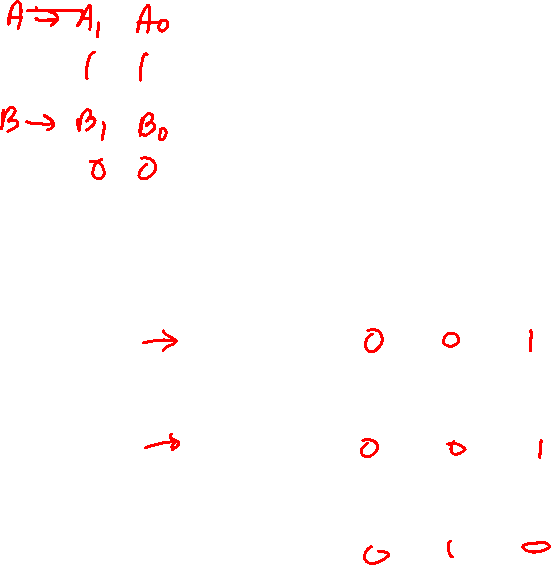 A → A₁ A₀
1 1
B → B₁ B₀
0 0
→ 0 0 1
→ 0 0 1
0 1 0